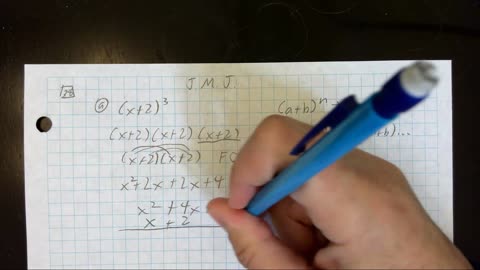 J.M.J.
ⓐ (x+2)³ (a+b)ⁿ =
(x+2)(x+2)(x+2) +b)...
(x+2)(x+2) F.O
x²+2x+2x+4
x² + 4x
x + 2